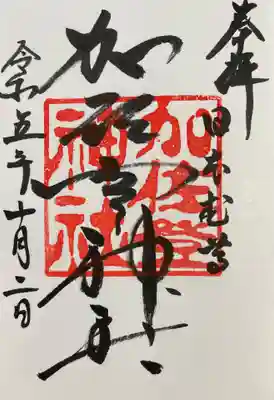 奉拝
日本武尊
加佐登神社
加佐登
神社
令和五年十月二日